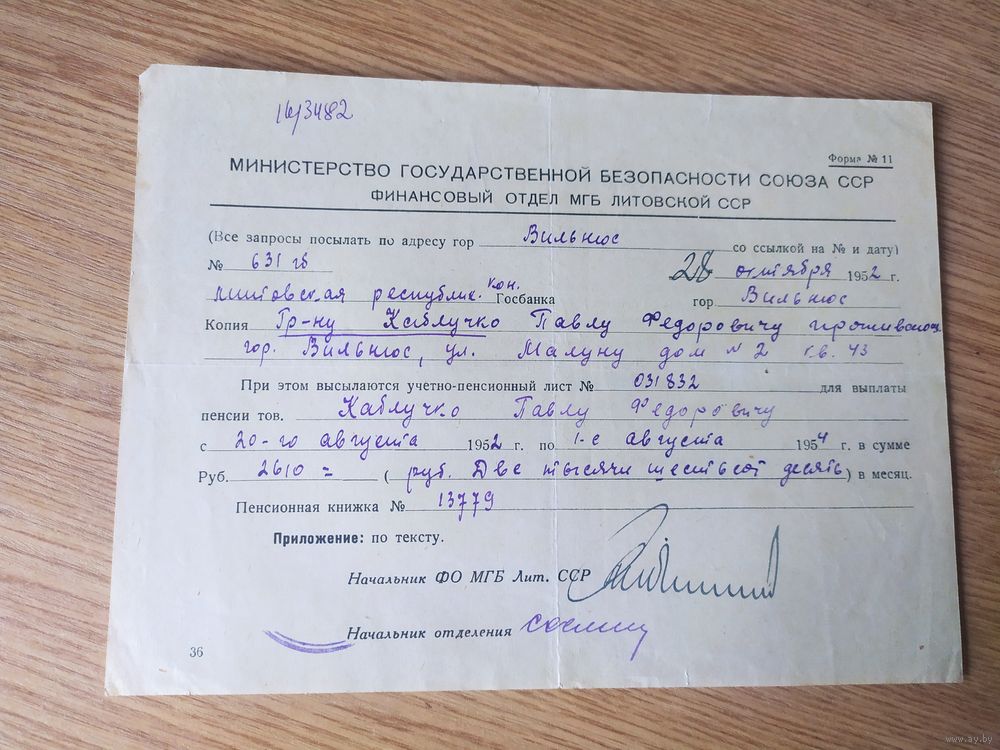 16/3482
Форма № 11
МИНИСТЕРСТВО ГОСУДАРСТВЕННОЙ БЕЗОПАСНОСТИ СОЮЗА ССР
ФИНАНСОВЫЙ ОТДЕЛ МГБ ЛИТОВСКОЙ ССР
(Все запросы посылать по адресу гор Вильнюс со ссылкой на № и дату)
№ 631 28 октября 1952 г.
Литовская республик. кон. Госбанка гор Вильнюс
Копия Гр-ну Каблучко Павлу Федоровичу
гор. Вильнюс, ул. Малуну дом № 2 кв. 43
При этом высылаются учетно-пенсионный лист № 031832 для выплаты
пенсии тов. Каблучко Павлу Федоровичу
с 20-го августа 1952 г. по 1-е августа 1954 г. в сумме
Руб. 2610 = (руб. Две тысячи шестьсот десять) в месяц.
Пенсионная книжка № 13779
Приложение: по тексту.
Начальник ФО МГБ Лит. ССР
Начальник отделения
36
www.ay.by